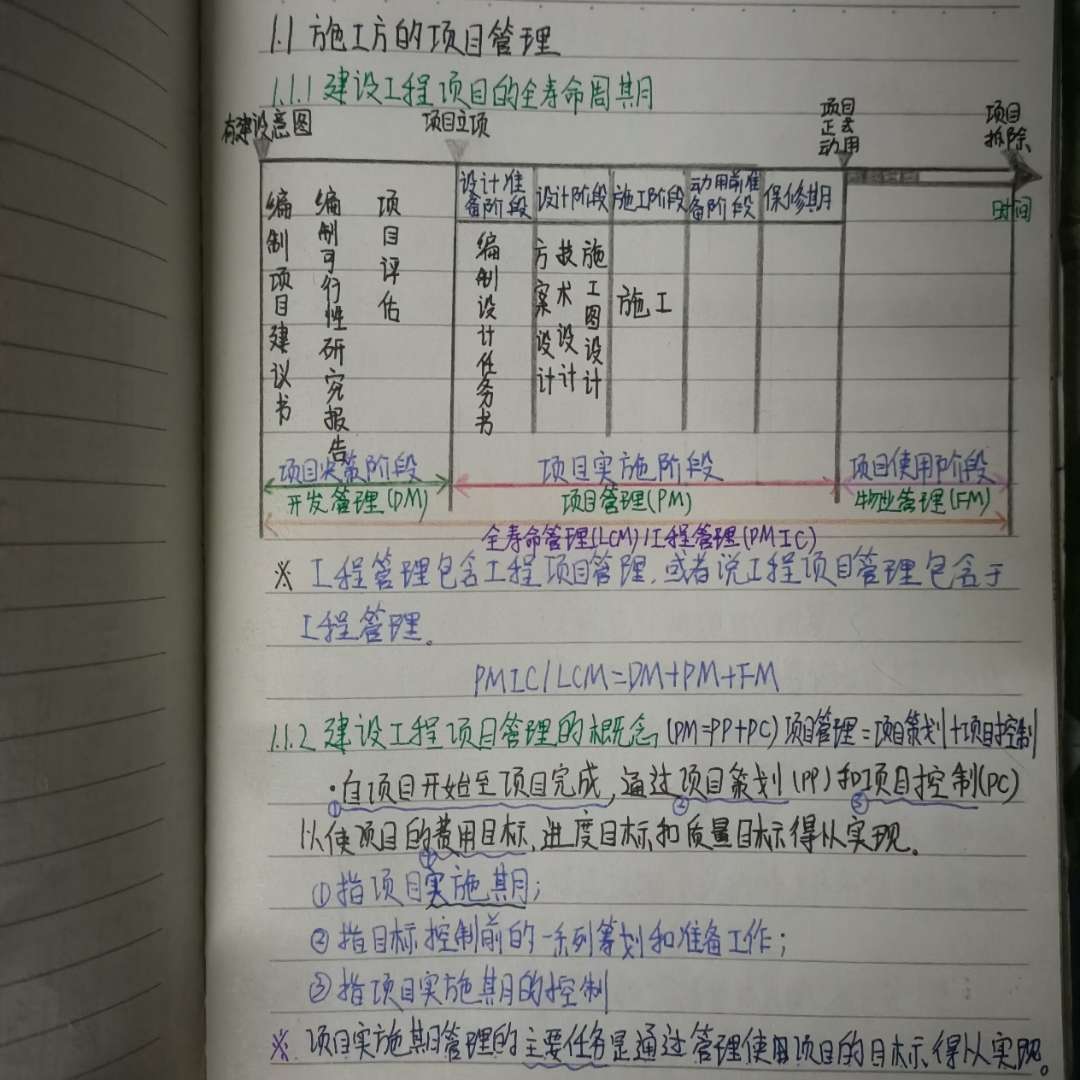 1.1 施工方的项目管理
1.1.1 建设工程项目的全寿命周期
有建设意图
项目立项
项目正式动用
项目拆除
时间
设计准备阶段
设计阶段
施工阶段
动用前准备阶段
保修期
编制项目建议书
编制可行性研究报告
项目评估
编制设计任务书
方案设计
技术设计
施工图设计
施工
项目决策阶段
项目实施阶段
项目使用阶段
开发管理(DM)
项目管理(PM)
物业管理(FM)
全寿命管理(LCM)/工程管理(PMIC)
※ 工程管理包含工程项目管理,或者说工程项目管理包含于
工程管理。
PMIC/LCM=DM+PM+FM
1.1.2 建设工程项目管理的概念 (PM=PP+PC) 项目管理=项目策划+项目控制
·自项目开始至项目完成,通过项目策划(PP)和项目控制(PC)
① ② ③
以使项目的费用目标、进度目标和质量目标得以实现。
①指项目实施期;
②指目标控制前的一系列筹划和准备工作;
③指项目实施期的控制
※ 项目实施期管理的主要任务是通过管理使用项目的目标得以实现。